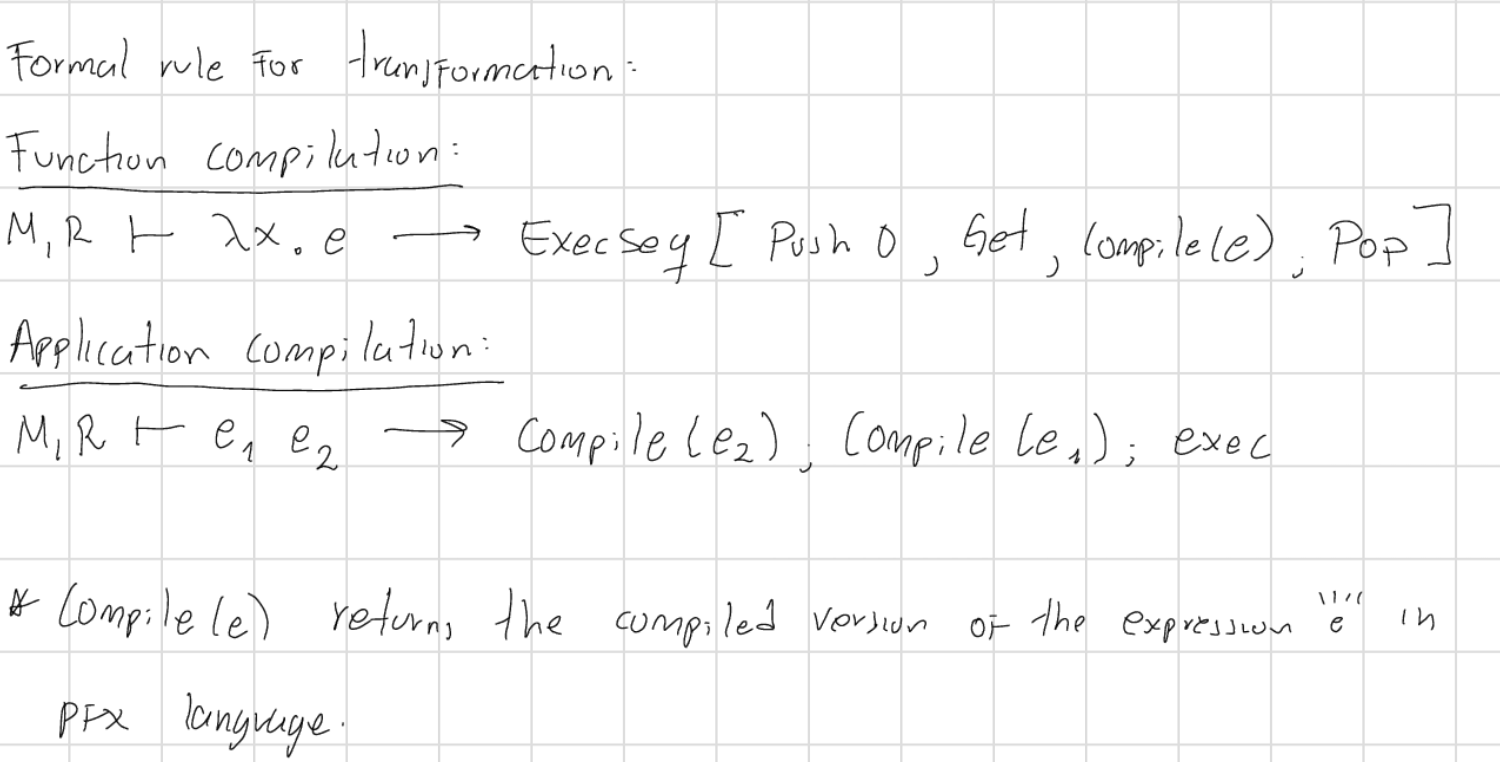 Formal rule for transformation:
Function compilation:
M,R ⊢ λx.e → ExecSeq [ Push 0, Get, Compile(e), Pop ]
Application compilation:
M,R ⊢ e₁ e₂ → Compile(e₂); Compile(e₁); exec
* Compile(e) returns the compiled version of the expression "e" in
PFX language.